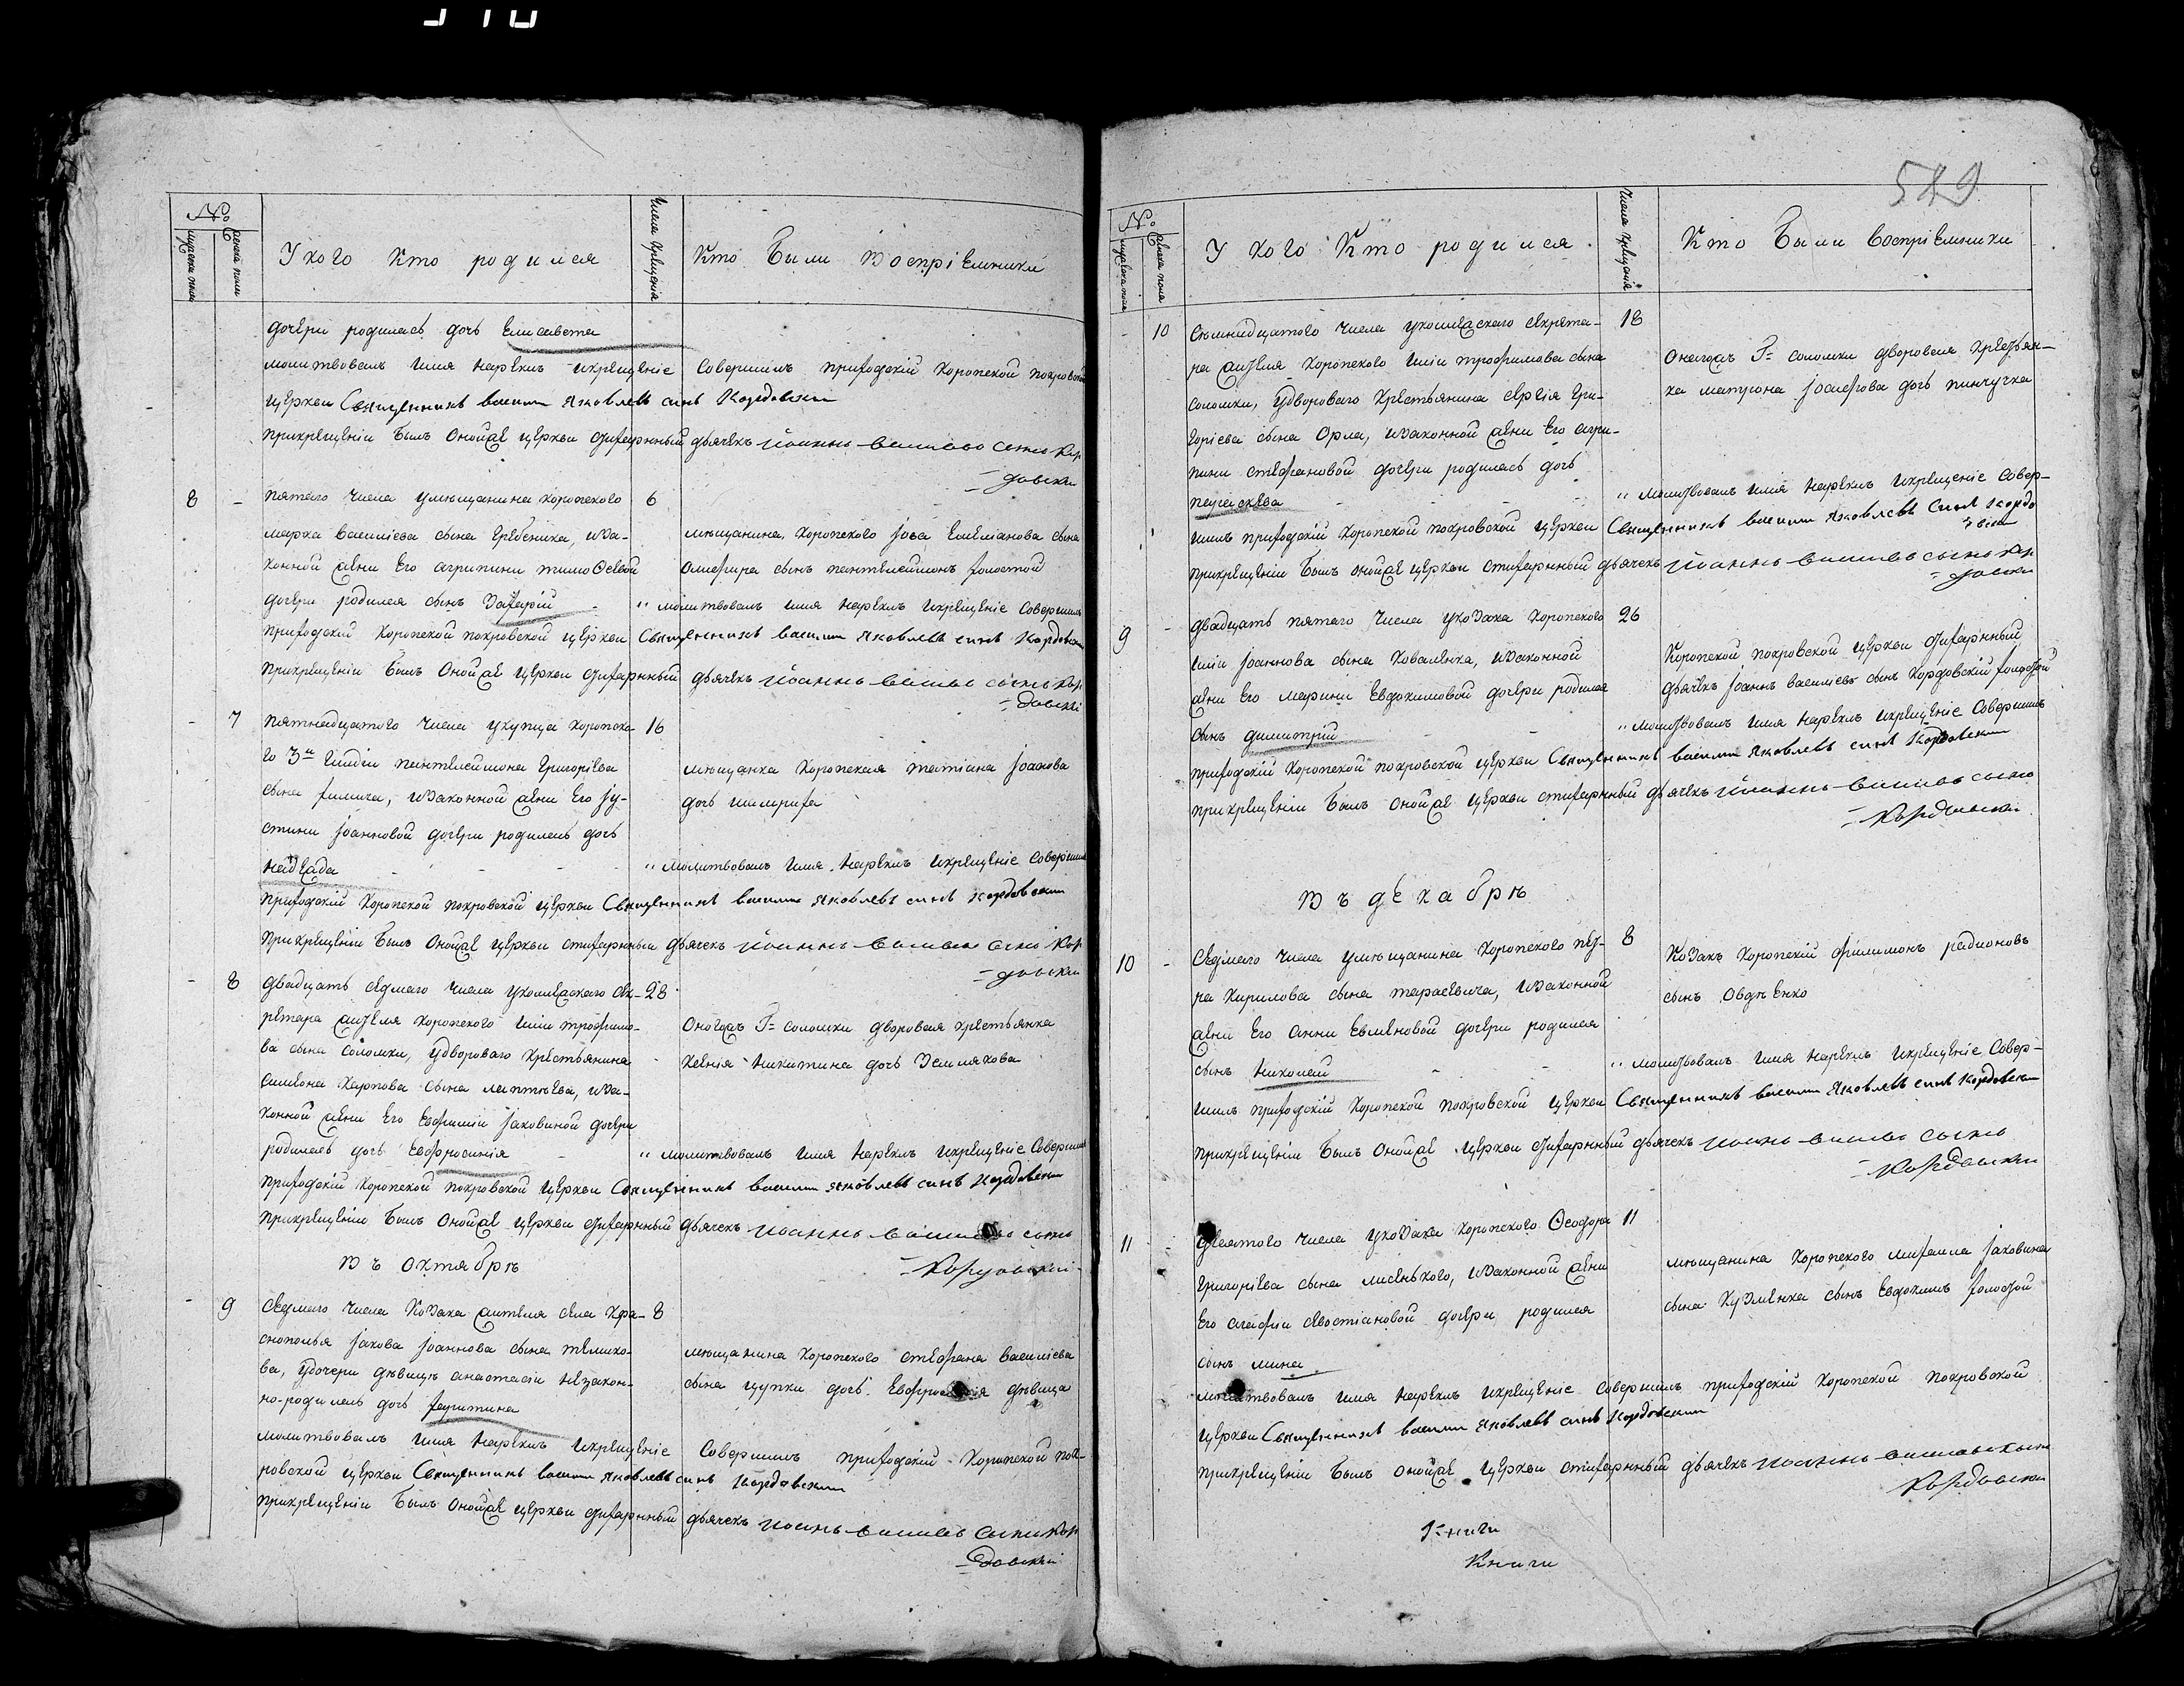 №
мужеска пола
женска пола
У кого кто родился
числа крещенія
Кто были воспріемники
дочери родилась дочь Елисавета
молитвовалъ имя нарекъ и крещеніе совершилъ приходскій Коропской покровской
церкви Священникъ василій Яковлевъ синъ Кордовскій
при крещеніи былъ оной же церкви стихарнный дьячекъ Иоаннъ василіевъ сынъ Кор
довскій
8 - пятого числа у мѣщанина коропского 6
марка василіева сына гребеника, и за-
конной жени его агрипини тимоѳеевой
дочери родился сынъ Захарій
мѣщанина, коропского Іова Емеліанова сына
сынъ пантелеймонъ холостой
" молитвовалъ имя нарекъ и крещеніе совершилъ
приходскій Коропской покровской церкви Священникъ василій Яковлевъ синъ Кордовскій
при крещеніи былъ оной же церкви стихарнный дьячекъ Иоаннъ василіевъ сынъ Кор
довскій
- 7 пятнадцатого числа у купца коропско- 16
го 3й гилдіи пантелеймона григоріева
сына химича, и законной жени его Іу-
стини Іоанновой дочери родилась дочь
надежда
мѣщанка коропская татіана Іоанова
дочь
" молитвовалъ имя нарекъ и крещеніе совершилъ
приходскій Коропской покровской церкви Священникъ василій Яковлевъ синъ Кордовскій
при крещеніи былъ оной же церкви стихарнный дьячекъ Иоаннъ василіевъ сынъ Кор
довскій
- 8 двадцать седмаго числа у колежскаго сек- 28
ретара жителя коропского трофимо-
ва сына соломки, у двороваго крестьянина
симеона карпова сына лаптѣева, и за-
конной жени его Евфиміи Іаковиной дочери
родилась дочь Евфросинія
оногожъ Г= соломки дворовая крестьянка
ксенія никитина дочь землякова
" молитвовалъ имя нарекъ и крещеніе совершилъ
приходскій Коропской покровской церкви Священникъ василій Яковлевъ синъ Кордовскій
при крещеніи былъ оной же церкви стихарнный дьячекъ Иоаннъ василіевъ сынъ
Кордовскій
Въ октябрѣ
- 9 седмаго числа козака жителя села Кра- 8
снополья Іакова Іоаннова сына
у дочери дѣвицѣ анастасіи незакон-
но-родилась дочь харитина
мѣщанина коропского стефана василіева
сына цупки дочь Евфросинія дѣвица
молитвовалъ имя нарекъ и крещеніе совершилъ приходскій Коропской пок-
ровской церкви Священникъ василій Яковлевъ синъ Кордовскій
при крещеніи былъ оной же церкви стихарнный дьячекъ Иоаннъ василіевъ сынъ Кор
довскій
549
№
мужеска пола
женска пола
У кого кто родился
числа крещенія
Кто были воспріемники
- 10 семнадцатого числа у колежскаго секрета- 18
ра жителя коропского трофимова сына
соломки, у двороваго крестьянина сергія гри-
горіева сына Орла, и законной жени его агри-
пини стефановой дочери родилась дочь
параскева
оногожъ Г= соломки дворовая крестьян-
ка матрона Іосифова дочь пинчучка
" молитвовалъ имя нарекъ и крещеніе совер-
шилъ приходскій Коропской покровской церкви Священникъ василій Яковлевъ синъ Кордо
вскій
при крещеніи былъ оной же церкви стихарнный дьячекъ Иоаннъ василіевъ сынъ Кор
довскій
9 - двадцать пятаго числа у козака коропского 26
иліи Іоаннова сына коваленка, и законной
жени его марини Евдокимовой дочери родился
сынъ димитрій
Коропской покровской церкви стихарнный
дьячекъ Іоаннъ василіевъ сынъ Кордовскій холостой
" молитвовалъ имя нарекъ и крещеніе совершилъ
приходскій Коропской покровской церкви Священникъ василій Яковлевъ синъ Кордовскій
при крещеніи былъ оной же церкви стихарнный дьячекъ Иоаннъ василіевъ сынъ
Кордовскій
Въ декабрѣ
10 - седмаго числа у мѣщанина коропского пет- 8
ра кирилова сына тарасевича, и законной
жени его анни Евменовой дочери родился
сынъ николай
Козакъ коропскій филимонъ радионовъ
сынъ Овдѣенко
" молитвовалъ имя нарекъ и крещеніе совер-
шилъ приходскій Коропской покровской церкви Священникъ василій Яковлевъ синъ Кордовскій
при крещеніи былъ оной же церкви стихарнный дьячекъ Иоаннъ василіевъ сынъ
Кордовскій
11 - десятого числа у козака коропского Ѳеодора 11
григоріева сына лисенкого, и законной жени
его агафіи севостіановой дочери родился
сынъ мина
мѣщанина коропского михаила Іаковина
сына кузменка сынъ Евдокимъ холостой
молитвовалъ имя нарекъ и крещеніе совершилъ приходскій Коропской покровской
церкви Священникъ василій Яковлевъ синъ Кордовскій
при крещеніи былъ оной же церкви стихарнный дьячекъ Иоаннъ василіевъ сынъ
Кордовскій
Книги